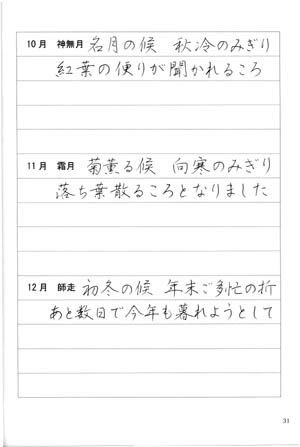 10月 神無月 名月の候 秋冷のみぎり
紅葉の便りが聞かれるころ
11月 霜月 菊薫る候 向寒のみぎり
落ち葉散るころとなりました
12月 師走 初冬の候 年末ご多忙の折
あと数日で今年も暮れようとして
31